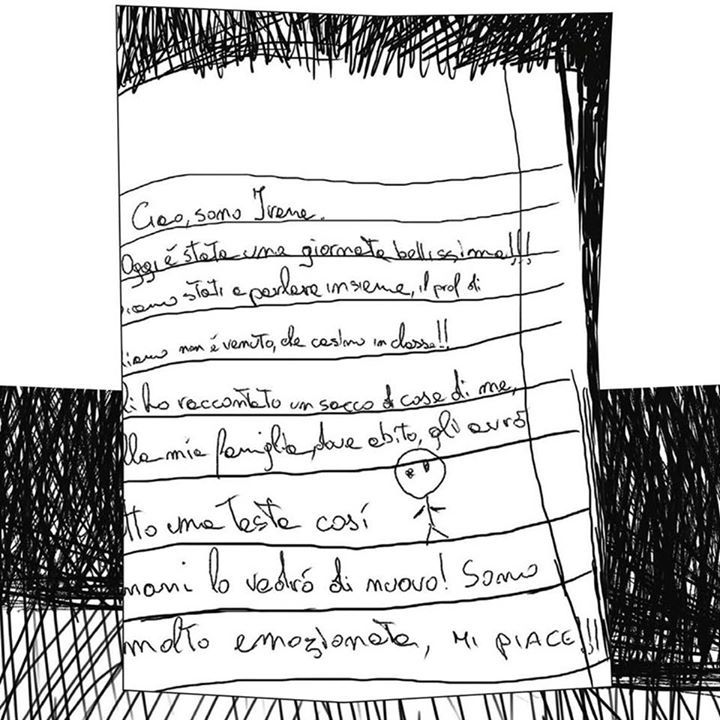 Ciao, sono Irene.
Oggi é stata una giornata bellissima!!!
iamo stati a parlare insieme, il prof di
liano non é venuto, che casino in classe!!
li ho raccontato un sacco di cose di me,
lla mia famiglia, dove abito, gli avró
tto una testa cosí
mani lo vedró di nuovo! Sono
molto emozionata, MI PIACE!!!